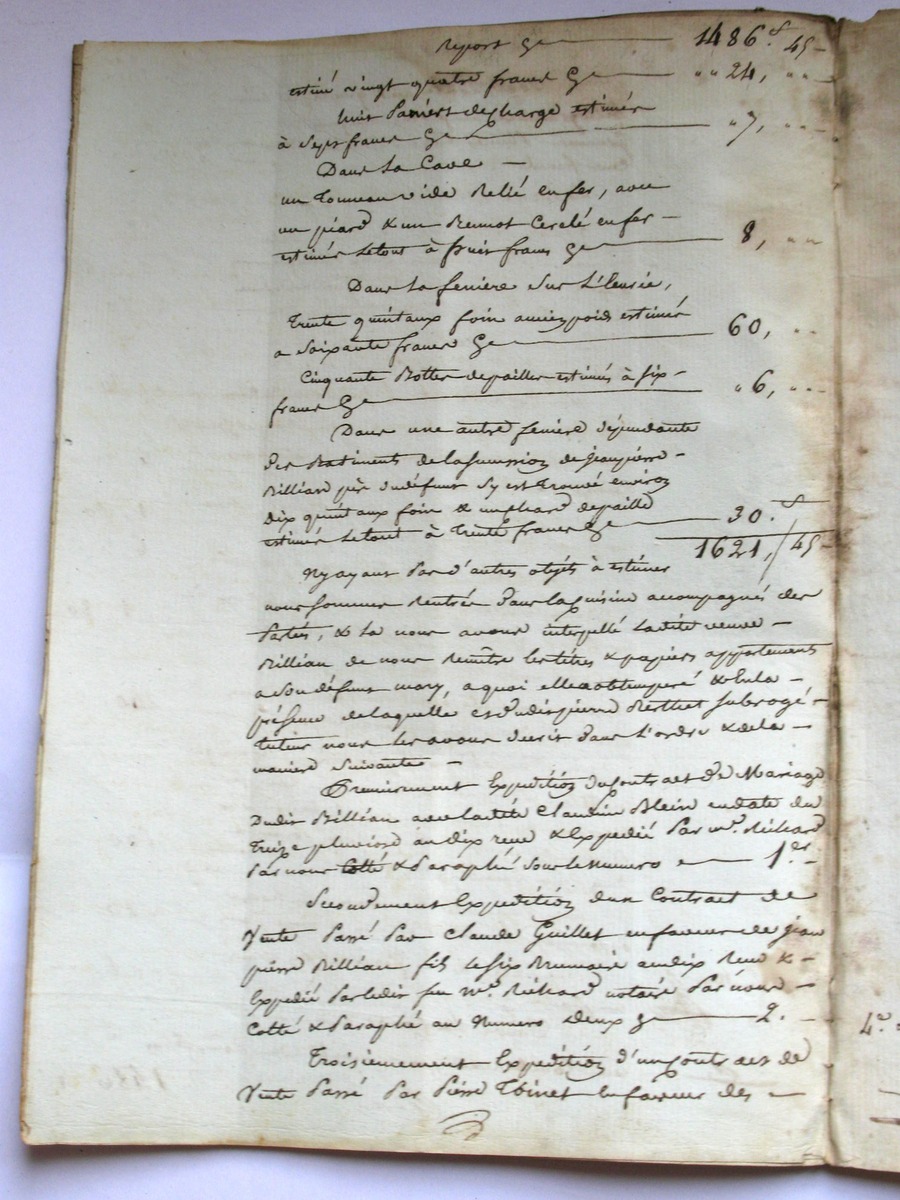 Report Cy 1486.f 45
estimé vingt quatre francs Cy " " 24, " "
huit paniers de charge estimés
à sept francs Cy " 7, " "
Dans la Cave
un Tonneau vide Relié en fer, avec
un & un Cerclé en fer
estimés le tout à huit francs Cy 8, " "
Dans la feniere sur L'Ecurie,
Trente quintaux foin ancien poids estimés
a soixante francs Cy 60, " "
Cinquante Bottes de pailles estimés à six
francs Cy " 6, " "
Dans une autre feniere dépendante
des Batiments de la succession de jean pierre
Billiéau père du défunt s'y est Trouvé environ
Dix quintaux foin & un de paille
estimés le tout à Trente francs Cy 30. f
1621, / 45
N'y ayant pas d'autres objets à estimer
nous sommes Rentrés dans la Cuisine accompagnés des
parties, & la nous avons interpellé la dite veuve
Billiéau de nous Remettre les titres & papiers appartenants
a son défunt mary, a quoi elle a obtemperé & En la
présence de laquelle et dudit pierre Berthet subrogé
tuteur nous les avons decrit dans l'ordre & de la
maniere suivante
Premierement Expedition du Contract de Mariage
Dudit Billiéau avec la dite Claudine Blein en date du
Treize pluviose an dix reçu & Expedié par me. Richard
par nous Cotté & Paraphé sous le Numero 1.er
Secondement Expedition d'un Contract de
Vente passé par Claude Guillet en faveur de jean
pierre Billiéau fils le six Brumaire an dix Reçu &
Expedié par ledit feu me. Richard notaire par nous
Cotté & Paraphé au Numero deux Cy 2.
Troisiemement Expedition d'un Contract de
Vente passé par Pierre Thinet En faveur des
4.o